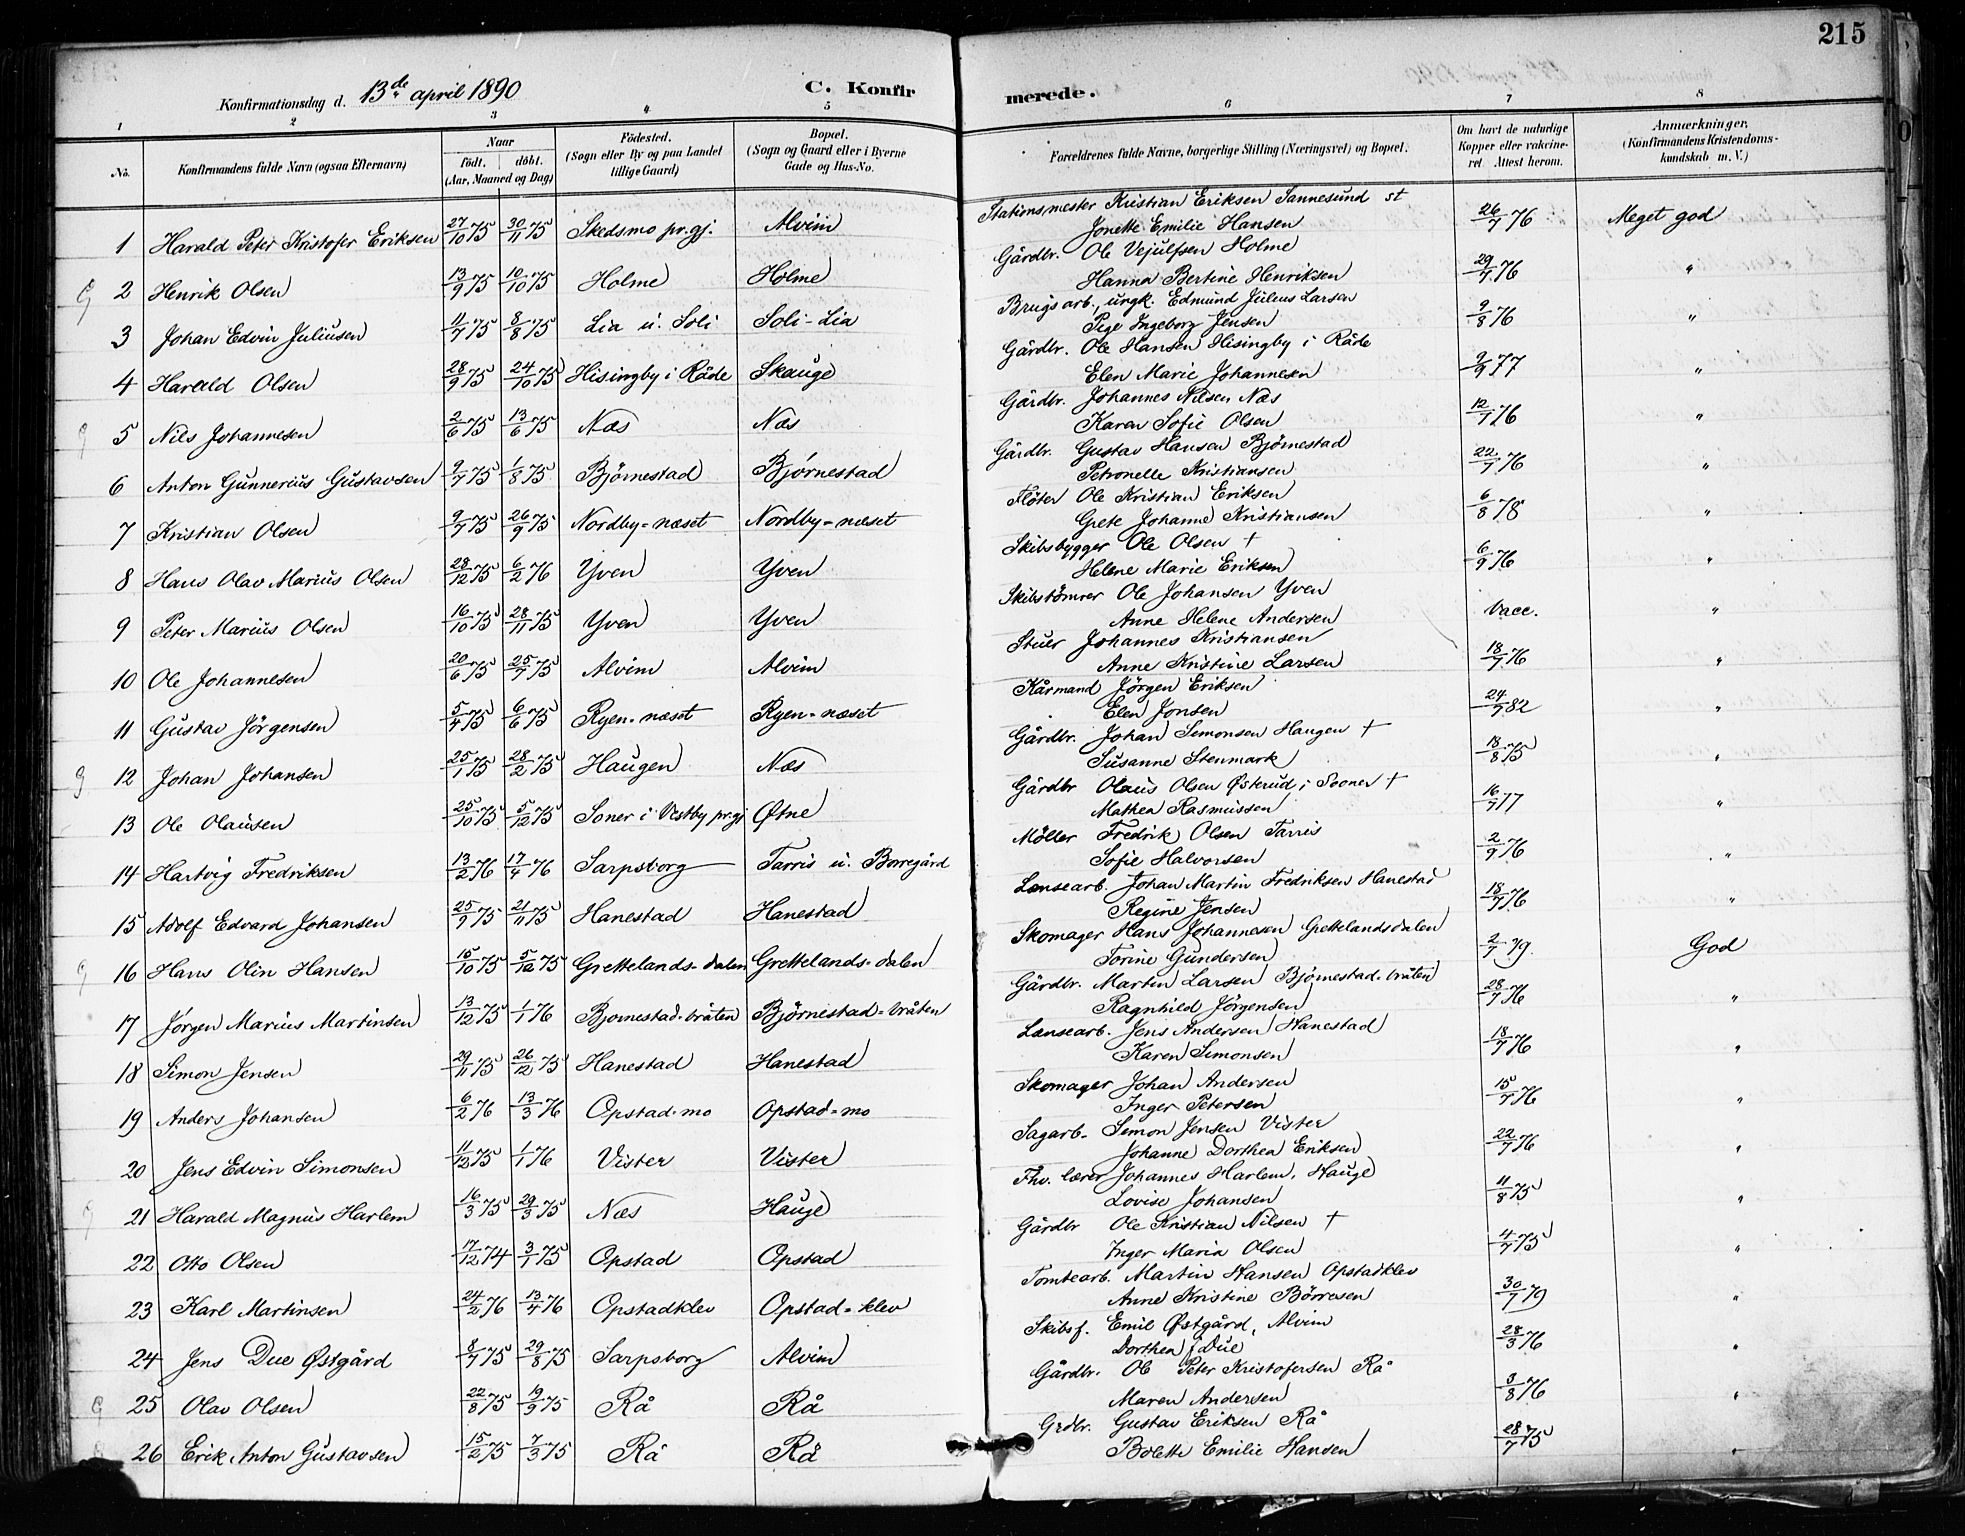 215
Konfirmationsdag d. 13de april 1890 C. Konfirmerede.
1 2 3 4 5 6 7 8
No. Konfirmandens fulde Navn (ogsaa Efternavn) Naar födt. döbt. (Aar, Maaned og Dag) Födested. (Sogn eller By og paa Landet tillige Gaard) Bopæl. (Sogn og Gaard eller i Byerne Gade og Hus-No. Forældrenes fulde Navne, borgerlige Stilling (Næringsvei) og Bopæl. Om havt de naturlige Kopper eller vakcineret. Attest herom. Anmærkninger, (Konfirmandens Kristendomskundskab m. V.)
1 Harald Peter Kristofer Eriksen 27/10 75 30/11 75 Skedsmo pr.gj. Alvim Stationsmester Kristian Eriksen Sannesund st 26/7 76 Meget god
Jonette Emilie Hansen
2 Henrik Olsen 13/9 75 10/10 75 Holme Holme Gårdbr. Ole Vejulfsen Holme 29/7 76 "
Hanna Bertine Henriksen
3 Johan Edvin Juliusen 11/7 75 8/8 75 Lia u. Soli Soli-Lia Brugsarb., ungk. Edmund Julius Larsen 9/8 76 "
Pige Ingeborg Jensen
4 Harald Olsen 28/9 75 24/10 75 Hisingby i Råde Skauge Gårdbr. Ole Hansen Hisingby i Råde 9/9 77 "
Elen Marie Johannesen
5 Nils Johannesen 2/6 75 13/6 75 Næs Næs Gårdbr. Johannes Nilsen Næs 12/7 76 "
Karen Sofie Olsen
6 Anton Gunnerius Gustavsen 9/7 75 1/8 75 Björnestad Björnestad Gårdbr. Gustav Hansen Bjørnestad 22/7 76 "
Petronelle Kristiansen
7 Kristian Olsen 9/9 75 26/9 75 Nordby-næset Nordby-næset Flöter Ole Kristian Eriksen 6/8 78 "
Grete Johanne Kristiansen
8 Hans Olav Marius Olsen 28/12 75 6/2 76 Yven Yven Skibsbygger Ole Olsen † 6/9 76 "
Helene Marie Eriksen
9 Peter Marius Olsen 16/10 75 28/11 75 Yven Yven Skibstömrer Ole Johansen Yven Vacc. "
Anne Helene Andersen
10 Ole Johannesen 20/6 75 25/7 75 Alvim Alvim Stuer Johannes Kristiansen 18/7 76 "
Anne Kristine Larsen
11 Gustav Jörgensen 5/4 75 6/6 75 Ryen-næset Ryen-næset Kårmand Jörgen Eriksen 24/9 82 "
Elen Jonsen
12 Johan Johansen 25/1 75 28/2 75 Haugen Næs Gårdbr. Johan Simonsen Haugen † 18/8 75 "
Susanne Stenmark
13 Ole Olausen 25/10 75 5/12 75 Soner i Vestby pr.gj Østne Gårdbr Olaus Olsen Østerud i Sooner † 16/7 77 "
Mathea Rasmussen
14 Hartvig Fredriksen 13/2 76 17/4 76 Sarpsborg Tarris u. Borregård Möller Fredrik Olsen Tarris 2/9 76 "
Sofie Halvorsen
15 Adolf Edvard Johansen 25/9 75 21/11 75 Hanestad Hanestad Lænsearb. Johan Martin Fredriksen Hanestad 18/7 76 "
Regine Jensen
16 Hans Olin Hansen 15/10 75 5/12 75 Grettelands-dalen Grettelands-dalen Skomager Hans Johannesen Grettelandsdalen 2/7 79. God
Torine Gundersen
17 Jörgen Marius Martinsen 13/12 75 1/1 76 Bjornestad-bråten Björnestad-bråten Gårdbr. Martin Larsen Björnestad-bråten 28/7 76 "
Ragnhild Jörgensen
18 Simon Jensen 29/11 75 26/12 75 Hanestad Hanestad Lænsearb. Jens Andersen Hanestad 18/7 76 "
Karen Simonsen
19 Anders Johansen 6/2 76 13/3 76 Opstad-mo Opstad-mo Skomager Johan Andersen 15/7 76 "
Inger Petersen
20 Jens Edvin Simonsen 11/12 75 1/1 76 Vister Vister Sagarb. Simon Jensen Vister 22/7 76 "
Johanne Dorthea Eriksen
21 Harald Magnus Harlem 16/3 75 29/3 75 Næs Hauge Fhv. lærer Johannes Harlem, Hauge 11/8 75 "
Lovise Johansen
22 Otto Olsen 17/12 74 3/1 75 Opstad Opstad Gårdbr Ole Kristian Nilsen † 4/7 75 "
Inger Maria Olsen
23 Karl Martinsen 24/2 76 13/4 76 Opstadklev Opstad-klev Tomtearb. Martin Hansen Opstadklev 30/7 79 "
Anne Kristine Börresen
24 Jens Due Østgård 8/7 75 29/8 75 Sarpsborg Alvim Skibsf. Emil Østgård, Alvim 28/3 76 "
Dorthea f. Due
25 Olav Olsen 22/8 75 19/9 75 Rå Rå Gårdbr. Ole Peter Kristofersen Rå 3/8 76 "
Maren Andersen
26 Erik Anton Gustavsen 15/2 75 7/3 75 Rå Rå Grdbr. Gustav Eriksen Rå 28/7 75 "
Bolette Emilie Hansen